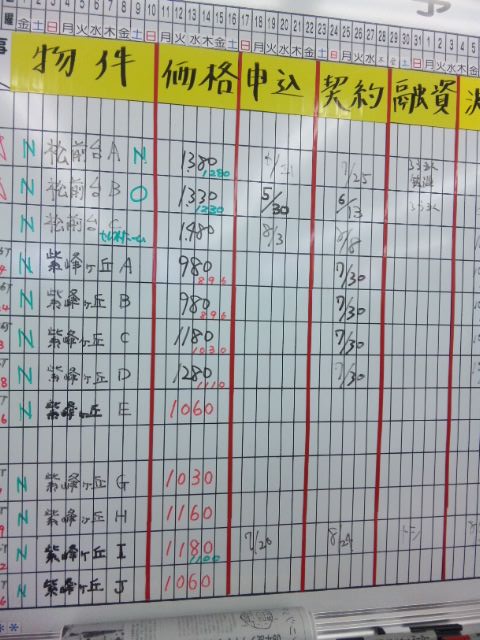 1 2 3 4 5 6 7 8 9 10 11 12 13 14 15 16 17 18 19 20 21 22 23 24 25 26 27 28 29 30 31 1 2 3 4 5
曜 金 土 日 月 火 水 木 金 土 日 月 火 水 木 金 土 日 月 火 水 木 金 土 日 月 火 水 木 金 土 日 月 火 水 木
物件 価格 申込 契約 融資
N 松前台 A N 1380 1280 7/25
N 松前台 B O 1330 1230 5/30 6/13
N 松前台 C 1480 8/3 8/8
N 紫峰ヶ丘 A 980 896 7/30
N 紫峰ヶ丘 B 980 896 7/30
N 紫峰ヶ丘 C 1180 1030 7/30
N 紫峰ヶ丘 D 1280 1110 7/30
N 紫峰ヶ丘 E 1060
N 紫峰ヶ丘 G 1030
N 紫峰ヶ丘 H 1160
N 紫峰ヶ丘 I 1180 1100 7/26 8/29
N 紫峰ヶ丘 J 1060